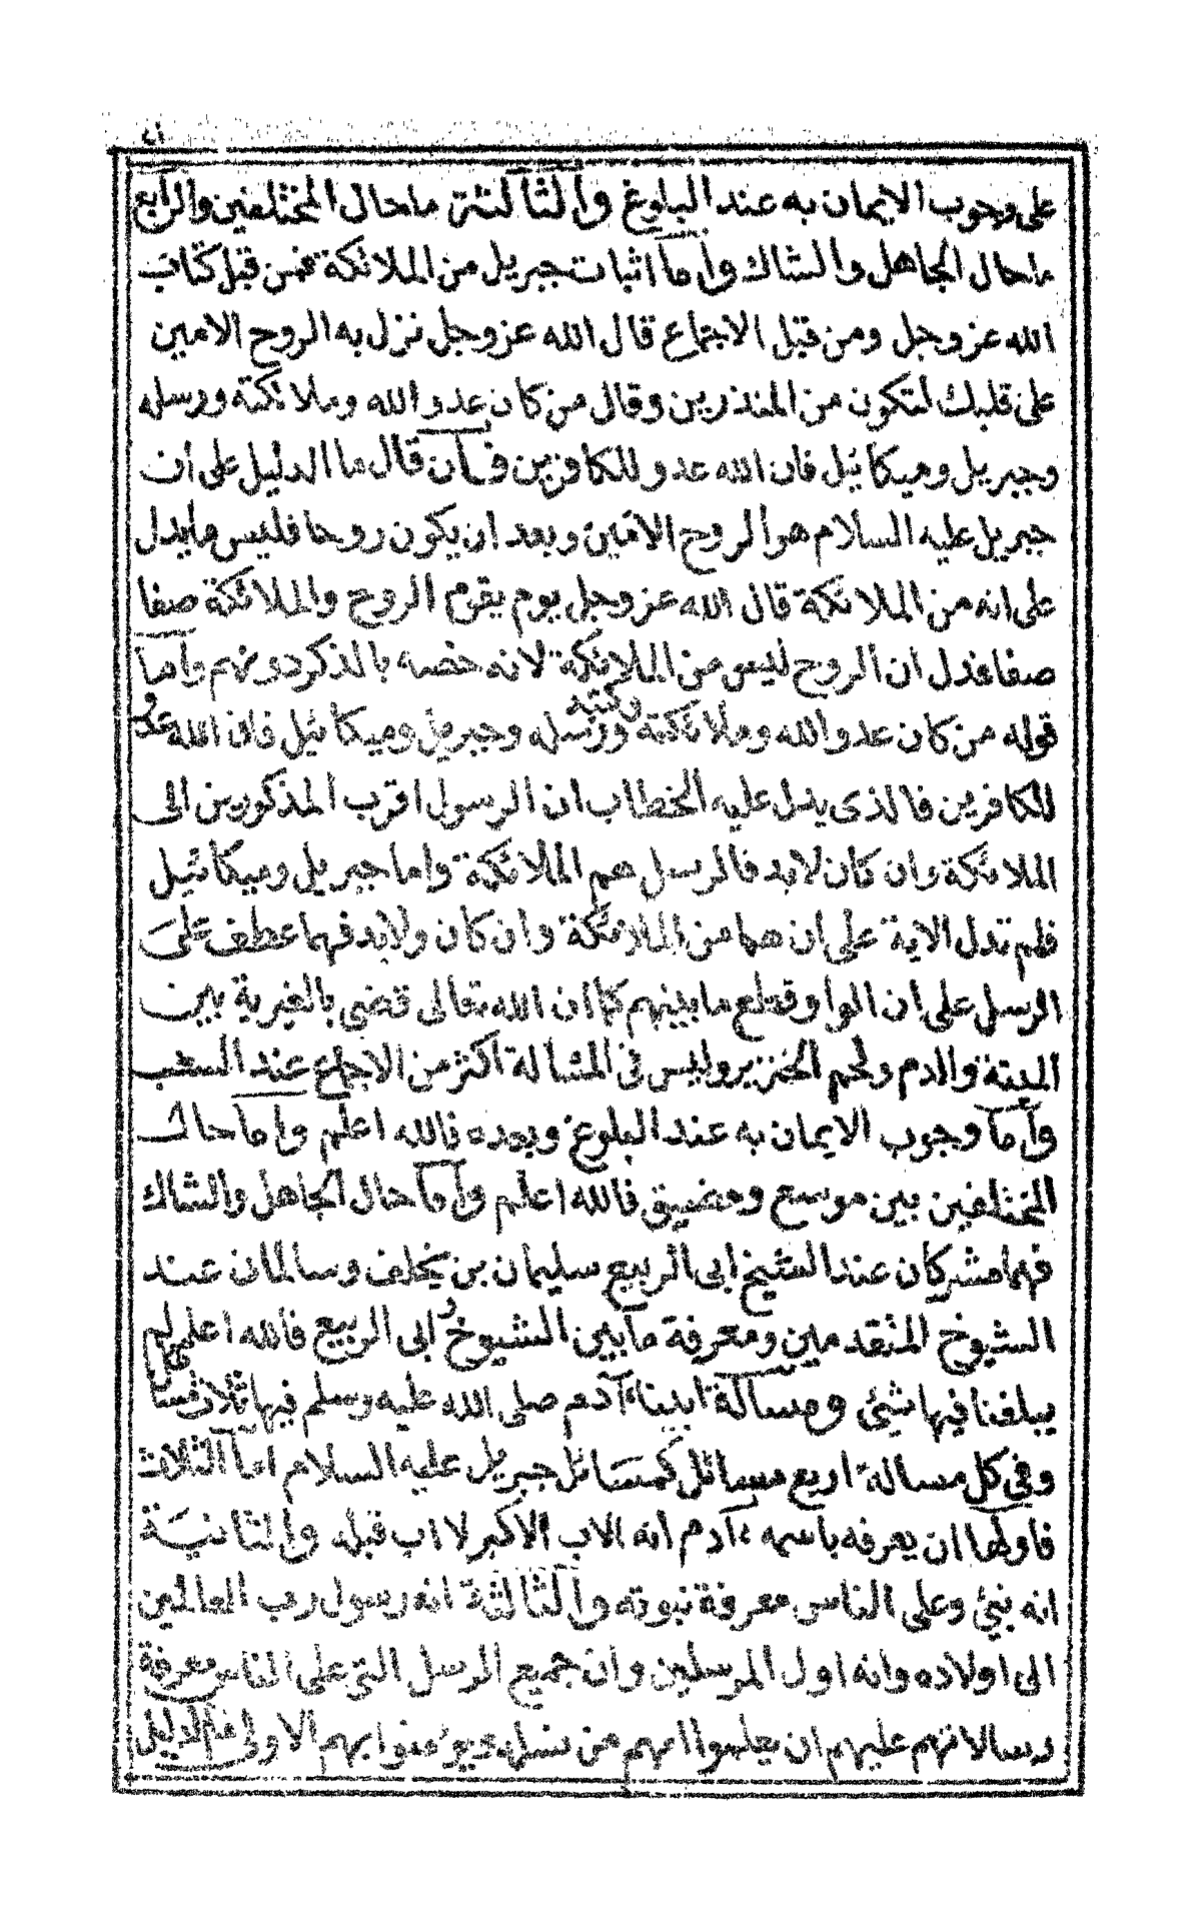 على وجوب الايمان به عند البلوغ والثالثة ماحال المختلفين والرابع
ماحال الجاهل والشاك واما اثبات جبريل من الملائكة فمن قبل كتاب
الله عز وجل ومن قبل الاجماع قال الله عز وجل نزل به الروح الامين
على قلبك لتكون من المنذرين وقال من كان عدوا لله وملائكته ورسله
وجبريل وميكائيل فان الله عدو للكافرين فان قال ما الدليل على ان
جبريل عليه السلام هو الروح الامين وبعد ان يكون روحا فليس مايدل
على انه من الملائكة قال الله عز وجل يوم يقوم الروح والملائكة صفا
صفا فدل ان الروح ليس من الملائكة لانه خصه بالذكر دونهم واما
قوله من كان عدوا لله وملائكته وكتبه ورسله وجبريل وميكائيل فان الله عدو
للكافرين فالذى يدل عليه الخطاب ان الرسول اقرب المذكورين الى
الملائكة وان كان لابد فالرسل هم الملائكة واما جبريل وميكائيل
فلم تدل الاية على ان هما من الملائكة وان كان ولابد فهما عطف على
الرسل على ان الواو قطع ما بينهم كما ان الله تعالى قضى بالغيرية بين
الميتة والدم ولحم الخنزير وليس فى المسالة اكثر من الاجماع عند السغب
واما وجوب الايمان به عند البلوغ وبعده فالله اعلم واما حال
المختلفين بين موسع ومضيق فالله اعلم واما حال الجاهل والشاك
فهما مشركان عند الشيخ ابى الربيع سليمان بن يخلف وسالمان عند
الشيوخ المتقدمين ومعرفة مابين الشيوخ و ابى الربيع فالله اعلم لم
يبلغنا فيها شئ ومسالة ابينا ءادم صلى الله عليه وسلم فيها ثلاث مسائل
وفى كل مسالة اربع مسائل كمسائل جبريل عليه السلام اما الثلاث
فاولها ان يعرفه باسمه ءادم انه الاب الاكبر لا اب قبله والثانية
انه نبئ وعلى الناس معرفة نبوته والثالثة انه رسول رب العالمين
الى اولاده وانه اول المرسلين وان جميع الرسل التى على الناس معرفة
رسالاتهم عليهم ان يعلموا انهم من نسله ويؤمنوا بهم الاولى فالدليل